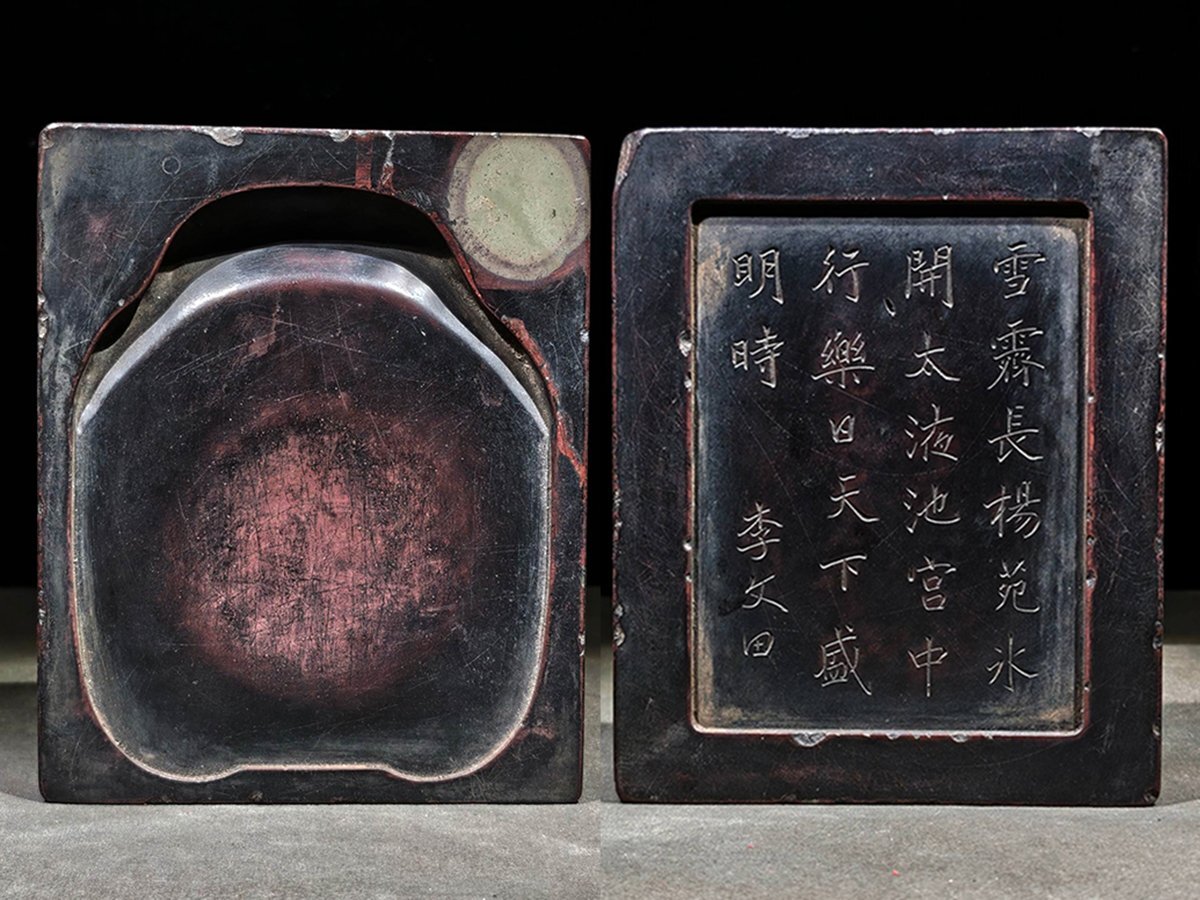 雪霽長楊苑氷
開太液池宮中
行樂日天下盛
明時
李文田